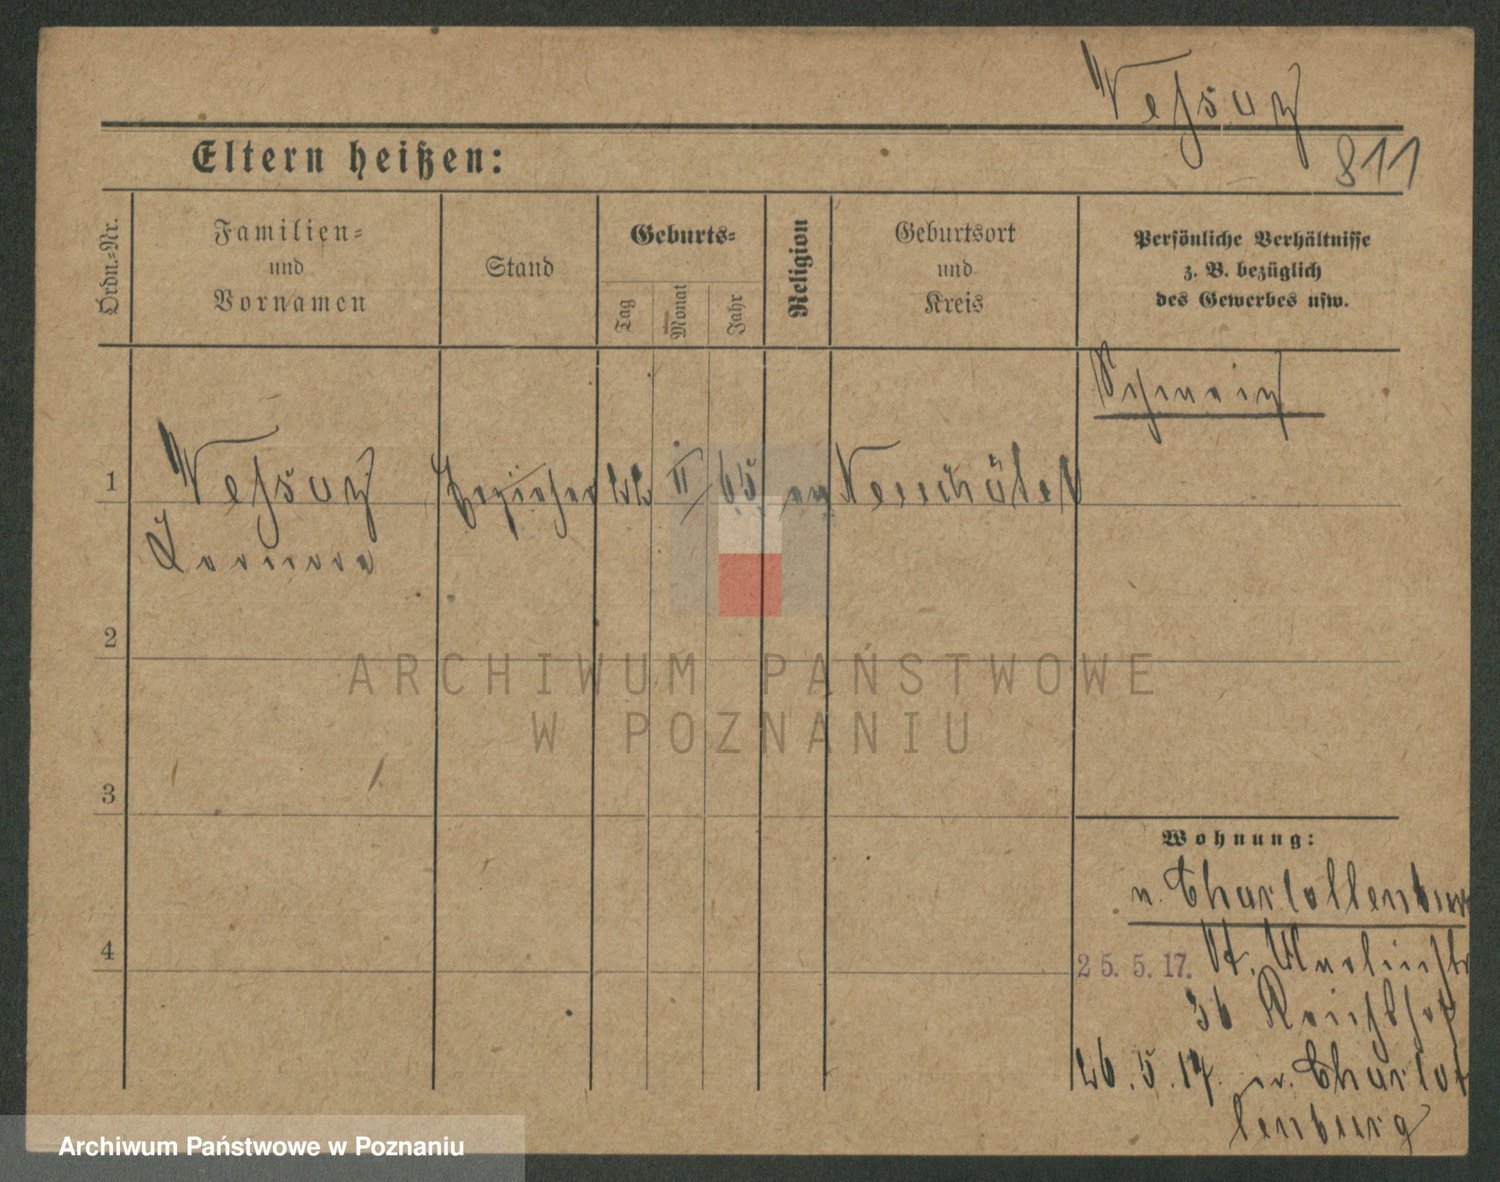 Vessaz
811
Eltern heißen:
Ordn.-Nr.
Familien-
und
Vornamen
Stand
Geburts-
Tag
Monat
Jahr
Religion
Geburtsort
und
Kreis
Persönliche Verhältnisse
z. B. bezüglich
des Gewerbes usw.
Schweiz
1
Vessaz
Erzieher
22
II
65
ev
Neuchâtel
2
3
4
Wohnung:
v. Charlottenburg
25. 5. 17. St. Martinstr
36 Reichshof
26. 5. 17. n. Charlot
tenburg
ARCHIWUM PAŃSTWOWE
W POZNANIU
Archiwum Państwowe w Poznaniu